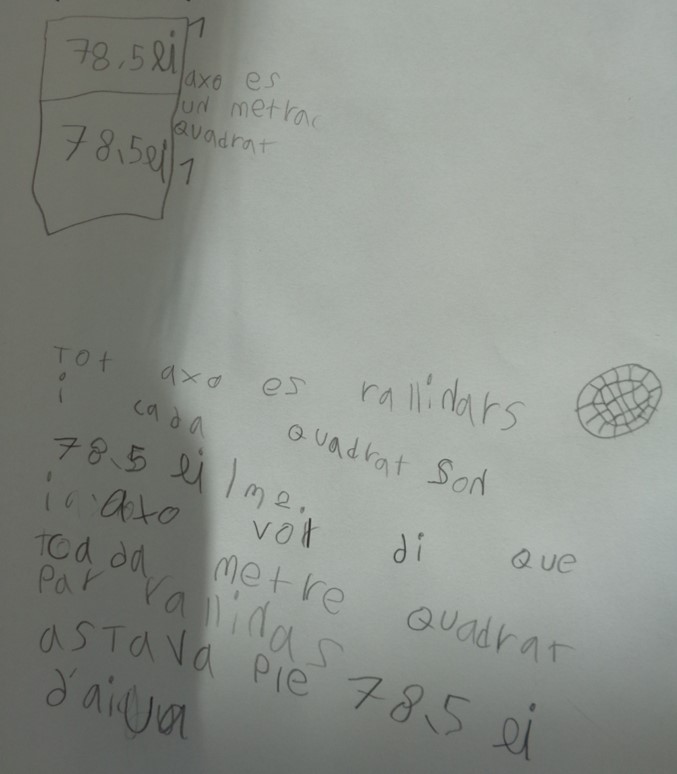 78.5 ei 1
axo es
un metrac
quadrat
78,5 ei 1
Tot axo es rallinars
i cada quadrat son
78,5 ei / me.
axo volt di que
metre quadrat
par rallinas
astava ple 78,5 ei
d'aigua